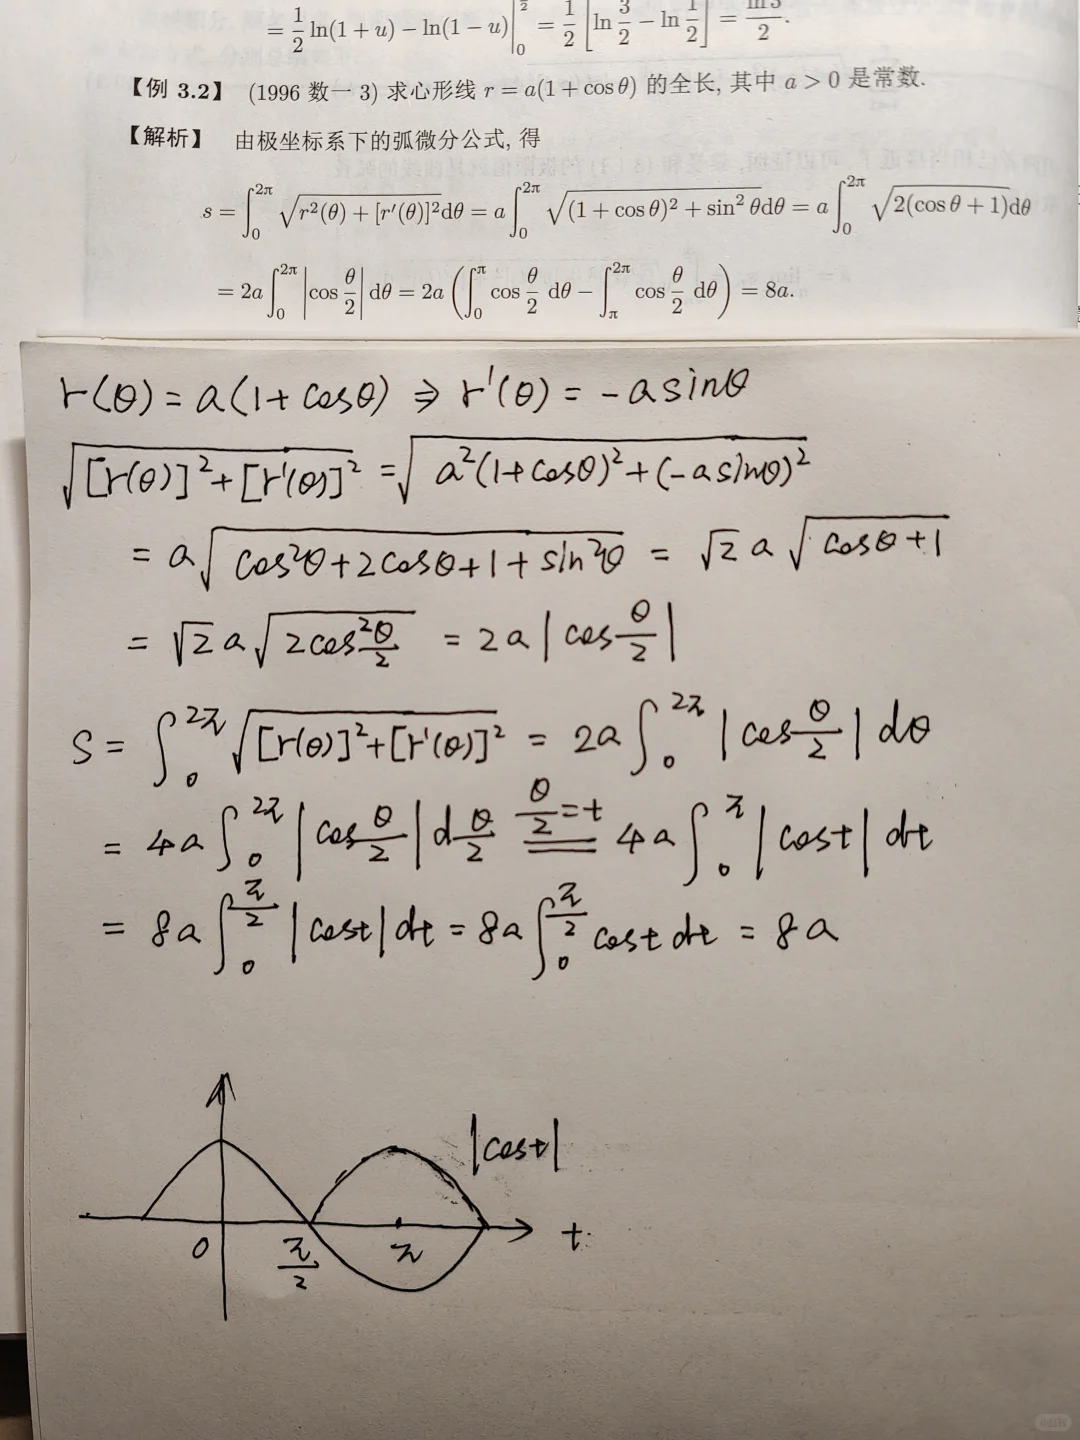 = 1/2 ln(1 + u) − ln(1 − u)|₀^{1/2} = 1/2 [ln 3/2 − ln 1/2] = ln 3/2.
【例 3.2】 (1996 数一 3) 求心形线 r = a(1 + cos θ) 的全长, 其中 a > 0 是常数.
【解析】 由极坐标系下的弧微分公式, 得
s = ∫₀^{2π} √(r²(θ) + [r′(θ)]²)dθ = a ∫₀^{2π} √((1 + cos θ)² + sin² θ)dθ = a ∫₀^{2π} √(2(cos θ + 1))dθ
= 2a ∫₀^{2π} |cos θ/2| dθ = 2a (∫₀^{π} cos θ/2 dθ − ∫_π^{2π} cos θ/2 dθ) = 8a.
r(θ) = a(1+cosθ) ⇒ r'(θ) = −a sinθ
√([r(θ)]²+[r'(θ)]²) = √(a²(1+cosθ)²+(−a sinθ)²)
= a√(cos²θ+2cosθ+1+sin²θ) = √2 a √(cosθ+1)
= √2 a √(2cos²θ/2) = 2a |cos θ/2|
S = ∫₀^{2π} √([r(θ)]²+[r'(θ)]²) = 2a ∫₀^{2π} |cos θ/2| dθ
= 4a ∫₀^{2π} |cos θ/2| d θ/2 θ/2=t 4a ∫₀^{π} |cost| dt
= 8a ∫₀^{π/2} |cost| dt = 8a ∫₀^{π/2} cost dt = 8a
|cost|
0 π/2 π t